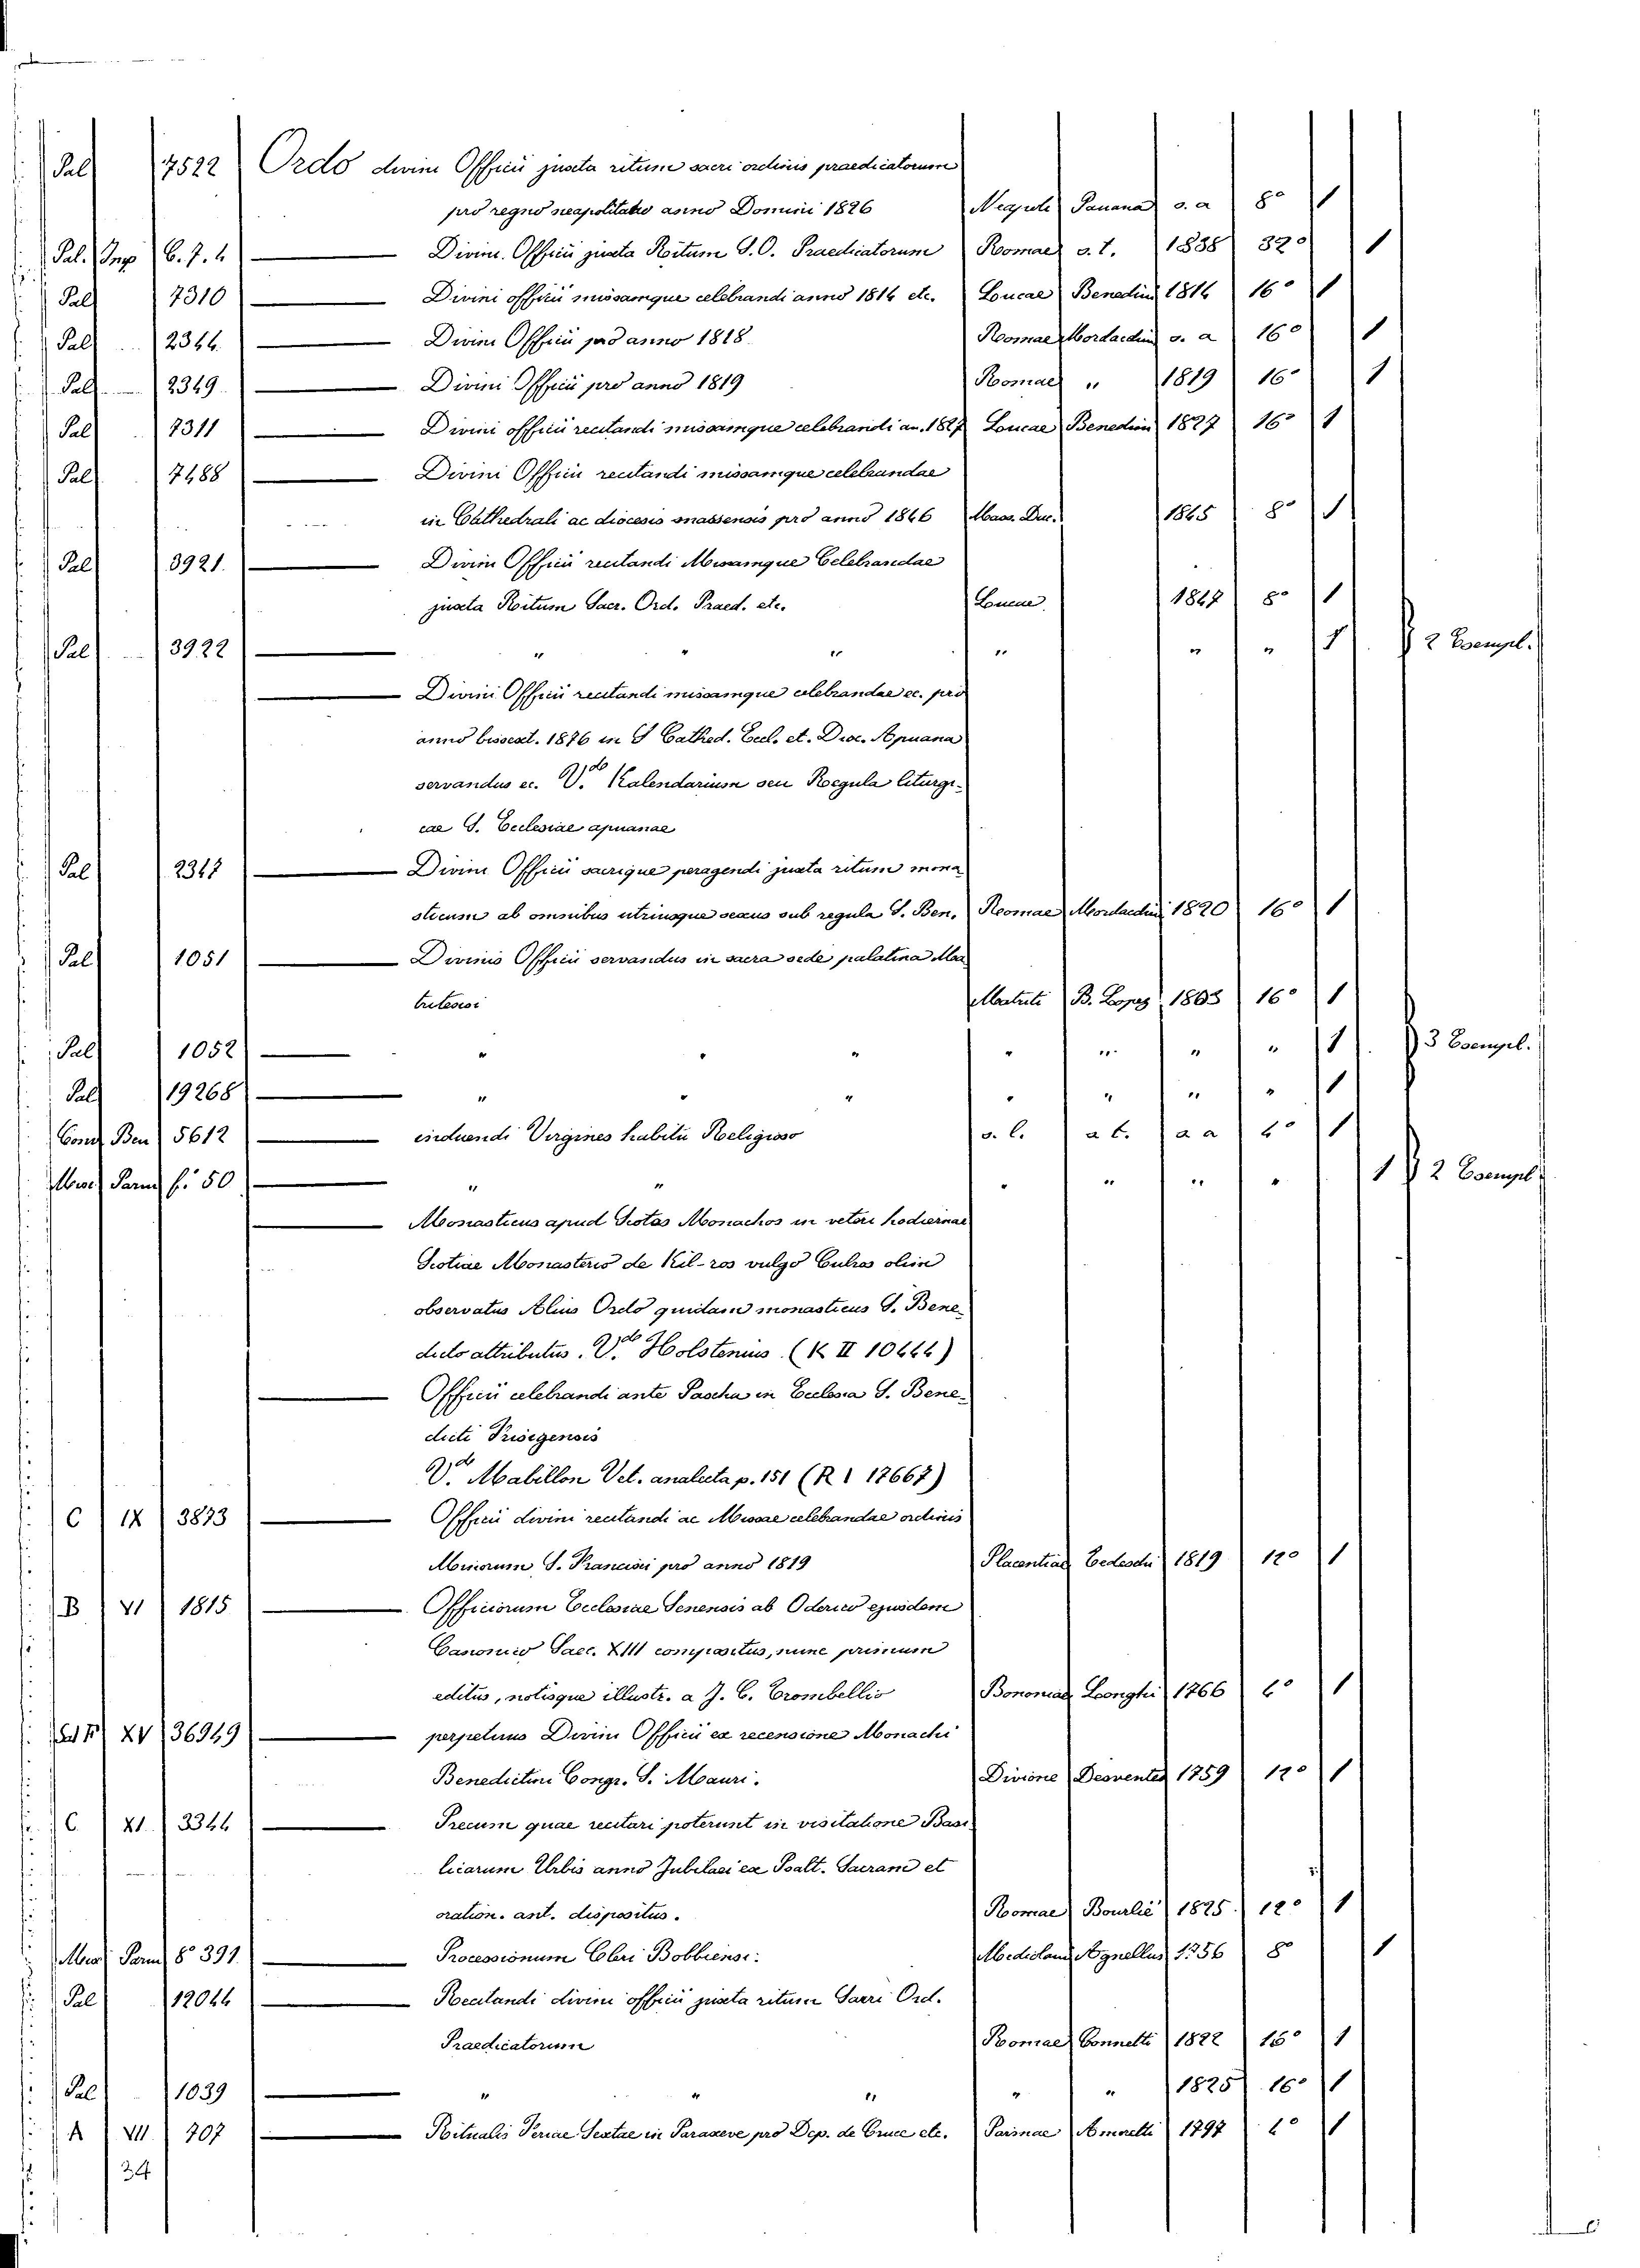 Pal 7522 Ordo divini Officii juxta ritum sacri ordinis praedicatorum
pro regno neapolitano anno Domini 1826 Neapoli s. a 8º 1
Pal. Imp 6. 7. 4 — Divini Officii juxta Ritum S. O. Praedicatorum Romae s. t. 1838 32º 1
Pal 7310 — Divini officii missamque celebrandi anno 1814 etc. Lucae Benedini 1814 16º 1
Pal 2344 — Divini Officii pro anno 1818 Romae Mordacchini s. a 16º 1
Pal 2349 — Divini Officii pro anno 1819 Romae " 1819 16º 1
Pal 7311 — Divini officii recitandi missamque celebrandi an. 1827 Lucae Benedini 1827 16º 1
Pal 7488 — Divini Officii recitandi missamque celebrandae
in Cathedrali ac diocesis massensis pro anno 1846 Mass. Duc. 1845 8º 1
Pal 3921. — Divini Officii recitandi Missamque Celebrandae
juxta Ritum Sacr. Ord. Praed. etc. Lucae 1847 8º 1
Pal 3922 — " " " " " " 1 } 2 Esempl.
— Divini Officii recitandi missamque celebrandae ec. pro
anno bissext. 1876 in S Cathed. Eccl. et. Dioc. Apuana
servandus ec. V.do Kalendarium seu Regula liturgi-
cae S. Ecclesiae apuanae
Pal 2347 — Divini Officii sacrique peragendi juxta ritum mona
sticum ab omnibus utriusque sexus sub regula S. Ben. Romae Mordacchini 1820 16º 1
Pal 1051 — Divinis Officii servandus in sacra aede palatina Ma
tritensi Matriti B. Lopez 1803 16º 1
Pal 1052 — " " " " " " " 1 } 3 Esempl.
Pal 19268 — " " " " " " " 1
Conv Ben 5612 — induendi Virgines habitu Religioso s. l. a t. a a 4º 1
Misc Parm f. 50 — " " " " " " 1 } 2 Esempl
— Monasticus apud Scotos Monachos in veteri hodiernae
Scotiae Monasterio de Kil-ros vulgo Culros olim
observatus Alius Ordo quidam monasticus S. Bene-
dicto attributus. V.do Holstenius. (K II 10444)
— Officii celebrandi ante Pascha in Ecclesia S. Bene-
dicti Frisigensis
V.do Mabillon Vet. analecta p. 151 (R 1 17667)
C IX 3873 — Officii divini recitandi ac Missae celebrandae ordinis
Minorum S. Francisci pro anno 1819 Placentiae Tedeschi 1819 12º 1
B VI 1815 — Officiorum Ecclesiae Senensis ab Oderico ejusdem
Canonico Saec. XIII compositus, nunc primum
editus, notisque illustr. a J. C. Trombellio Bononiae Longhi 1766 4º 1
XV 36949 — perpetuus Divini Officii ex recensione Monachi
Benedictini Congr. S. Mauri. Divione Desventes 1759 12º 1
C XI. 3344 — Precum quae recitari poterunt in visitatione Basi-
licarum Urbis anno Jubilaei ex Psalt. Sacram et
oration. ant. dispositus. Romae Bourlié 1825 12º 1
Misc Parm 8º 391 — Processionum Cleri Bobbiensi. Mediolani Agnellus 1756 8º 1
Pal 12044 — Recitandi divini officii juxta ritum Sacri Ord.
Praedicatorum Romae Connetti 1822 16º 1
Pal 1039 — " " " " " 1825 16º 1
A VII 707 — Ritualis Feriae Sextae in Parasceve pro Dep. de Cruce etc. Parmae Amoretti 1797 4º 1
34